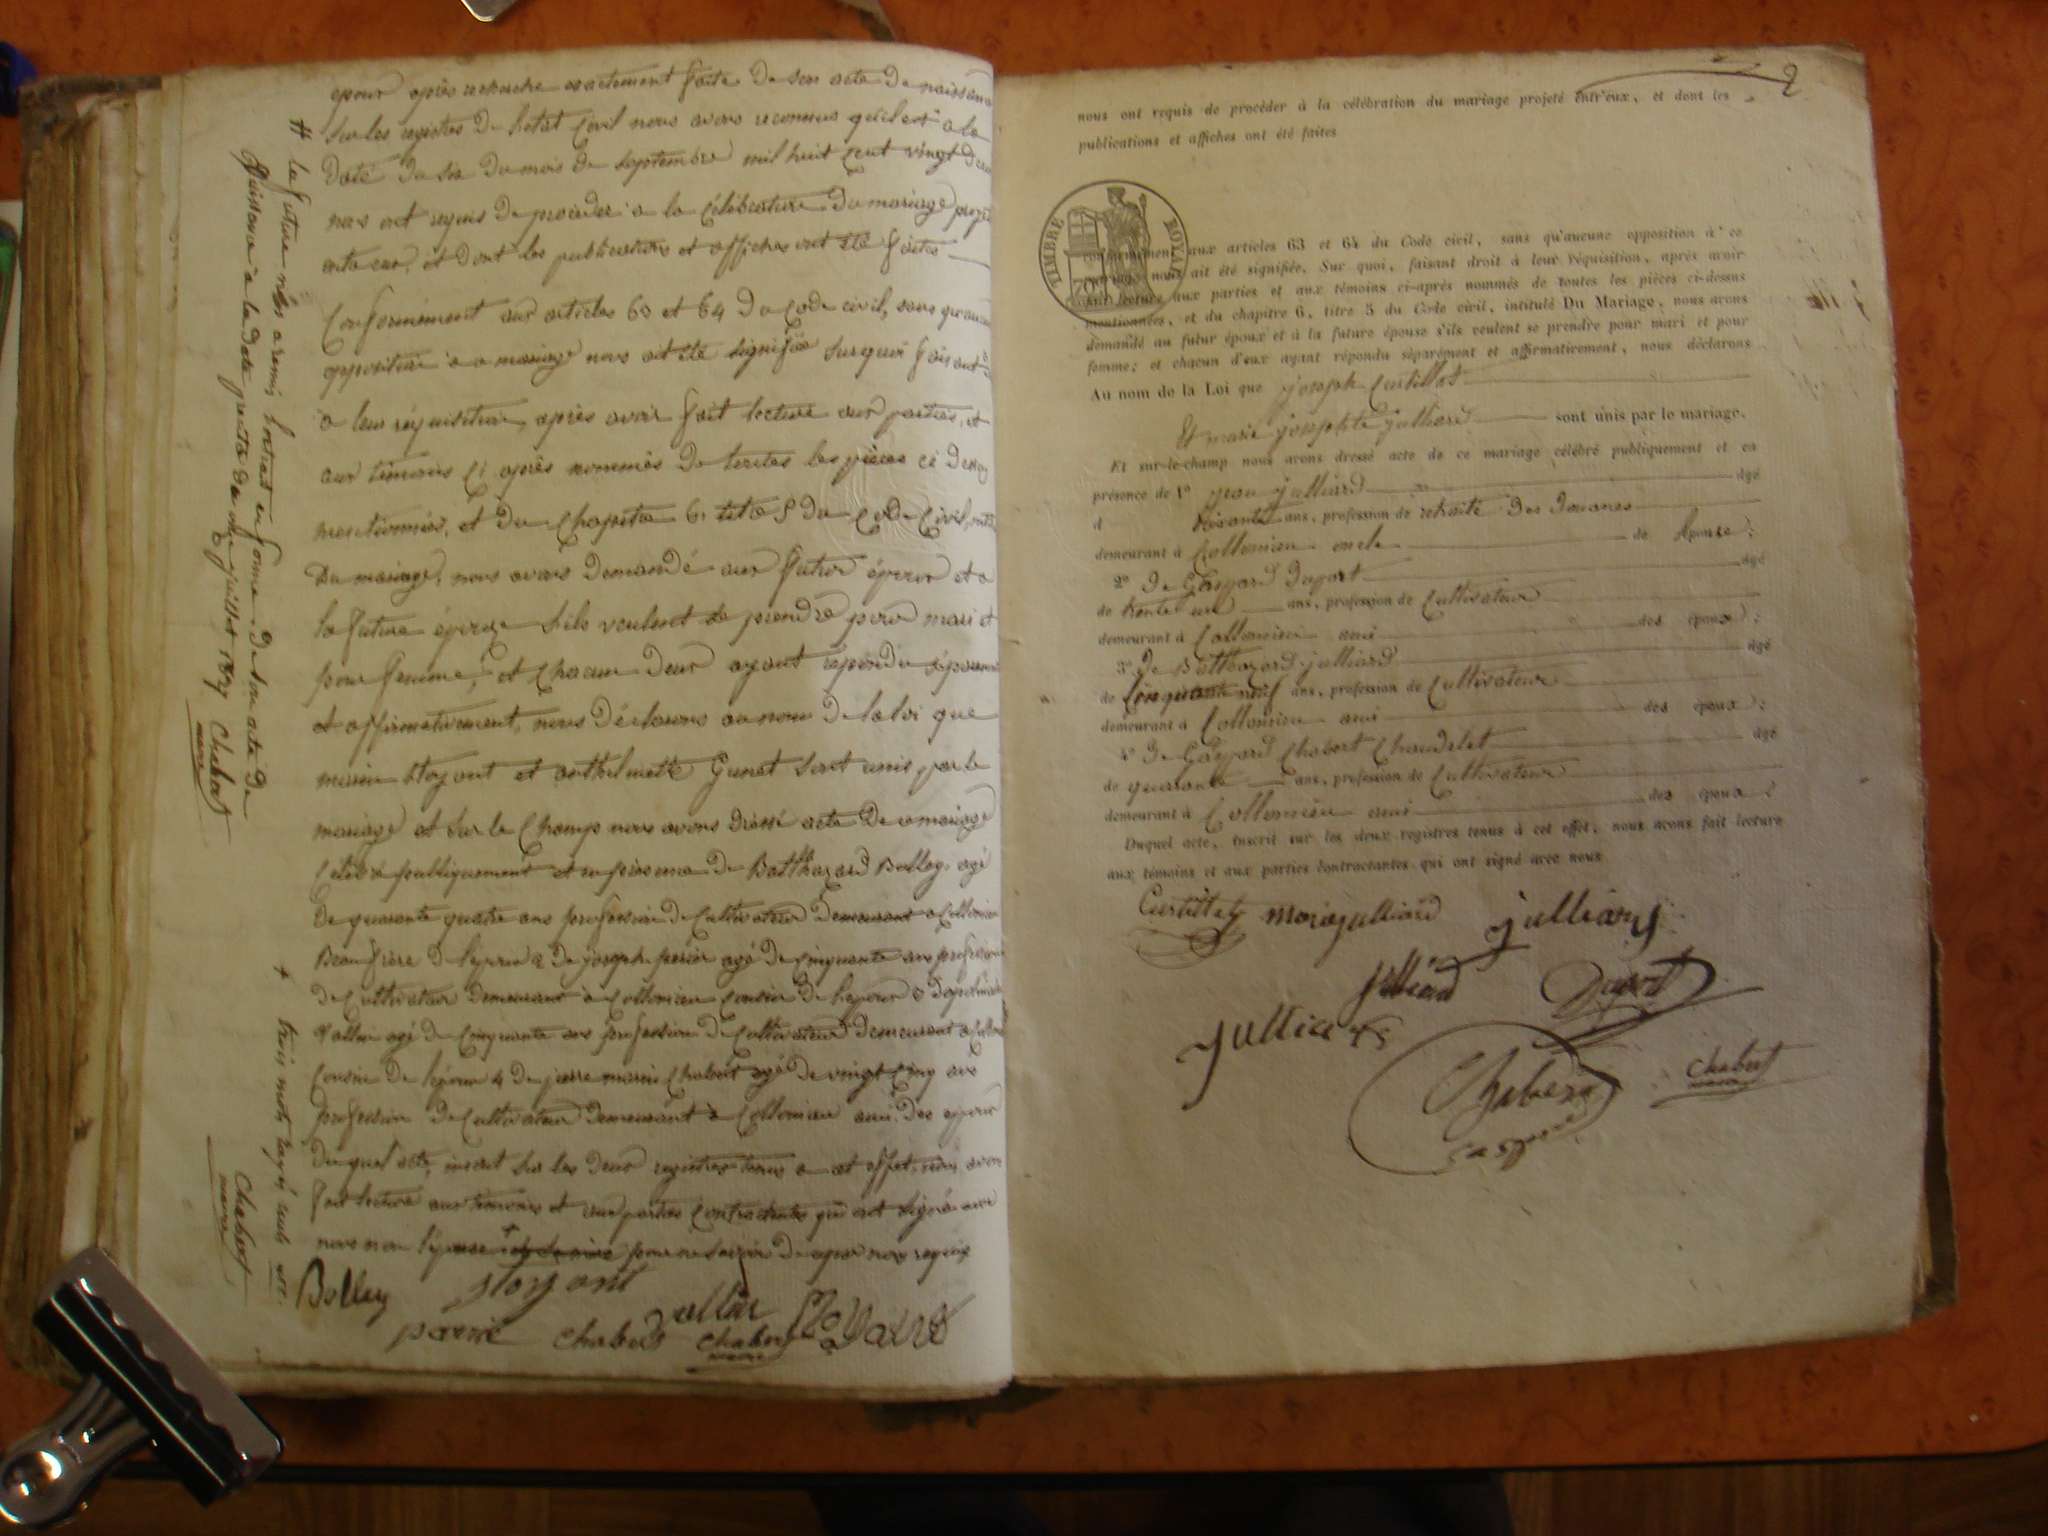 époux après recherche exactement faite de son acte de naissance
sur les registres de l'etat Civil nous avons reconnus quil est a la
date du six du mois de septembre mil huit cent vingt deux
nous ont requis de proceder a la Célébration du mariage projeté
entre eux, et dont les publications et affiches ont été faites
Conformement aux articles 63 et 64 du Code civil, sans qu'aucune
opposition a ce mariage nous ait été signifiée sur quoi faisant
a leur réquisition, après avoir fait lecture aux parties, et
aux témoins ci après nommés de toutes les pièces ci dessus
mentionnées, et du Chapitre 6, titre 5 du Code Civil,
Du mariage, nous avons demandé aux futur époux et a
la future épouse s'ils veulent se prendre pour mari et
pour femme, et chacun deux ayant répondu séparement
et affirmativement, nous déclarons au nom de la loi que
Stoyont et anthelmette Gunet sont unis par le
mariage et sur le Champ nous avons dressé acte de ce mariage
Célébré publiquement et en présence de Balthazard Bolley agé
de quarante quatre ans profession de Cultivateur demeurant a Collonieu
Beau frère de l'epoux 2 de joseph agé de Cinquante ans profession
de Cultivateur demeurant a Collonieu Cousin de l'epoux 3
agé de Cinquante ans profession de Cultivateur demeurant a
Cousin de l'epoux 4 de pierre marin Chabert agé de vingt cinq ans
profession de Cultivateur demeurant a Collonieu ami des epoux
duquel acte, inscrit sur les deux registres tenus a cet effet, nous avons
fait lecture aux temoins et aux parties contractantes qui ont signé avec
nous non l'épouse pour ne savoir de ce par nous requise
Bolley Stoyont
Chabert Chabert
maire
# la future nous a remis l'extrait en forme de son acte de
Naissance a la date du juillet 18
Chabert
maire
+ trois mots rayés nuls
Chabert
maire
2
nous ont requis de procéder à la célébration du mariage projeté entr'eux, et dont les
publications et affiches ont été faites
TIMBRE ROYAL
70
conformément aux articles 63 et 64 du Code civil, sans qu'aucune opposition à ce
mariage nous ait été signifiée. Sur quoi, faisant droit à leur réquisition, après avoir
fait lecture aux parties et aux témoins ci-après nommés de toutes les pièces ci-dessus
mentionnées, et du chapitre 6, titre 5 du Code civil, intitulé Du Mariage, nous avons
demandé au futur époux et à la future épouse s'ils veulent se prendre pour mari et pour
femme; et chacun d'eux ayant répondu séparément et affirmativement, nous déclarons
Au nom de la Loi que joseph Curtillat
Et marie josephte julliard sont unis par le mariage.
Et sur-le-champ nous avons dressé acte de ce mariage célébré publiquement et en
présence de 1° jean julliard âgé
d soixante ans, profession de retraité des douanes
demeurant à Collonieu oncle de l'épouse;
2° de Gaspard Duport âgé
de trente un ans, profession de Cultivateur
demeurant à Collonieu ami des époux;
3° de Balthazard julliard âgé
de Cinquante neuf ans, profession de Cultivateur
demeurant à Collonieu ami des époux;
4° de Gaspard Chabert Chaudelet âgé
de quarante ans, profession de Cultivateur
demeurant à Collonieu ami des époux;
Duquel acte, inscrit sur les deux registres tenus à cet effet, nous avons fait lecture
aux témoins et aux parties contractantes qui ont signé avec nous
Curtillat maria julliard julliard
julliard Duport
Chabert
Chabert
maire